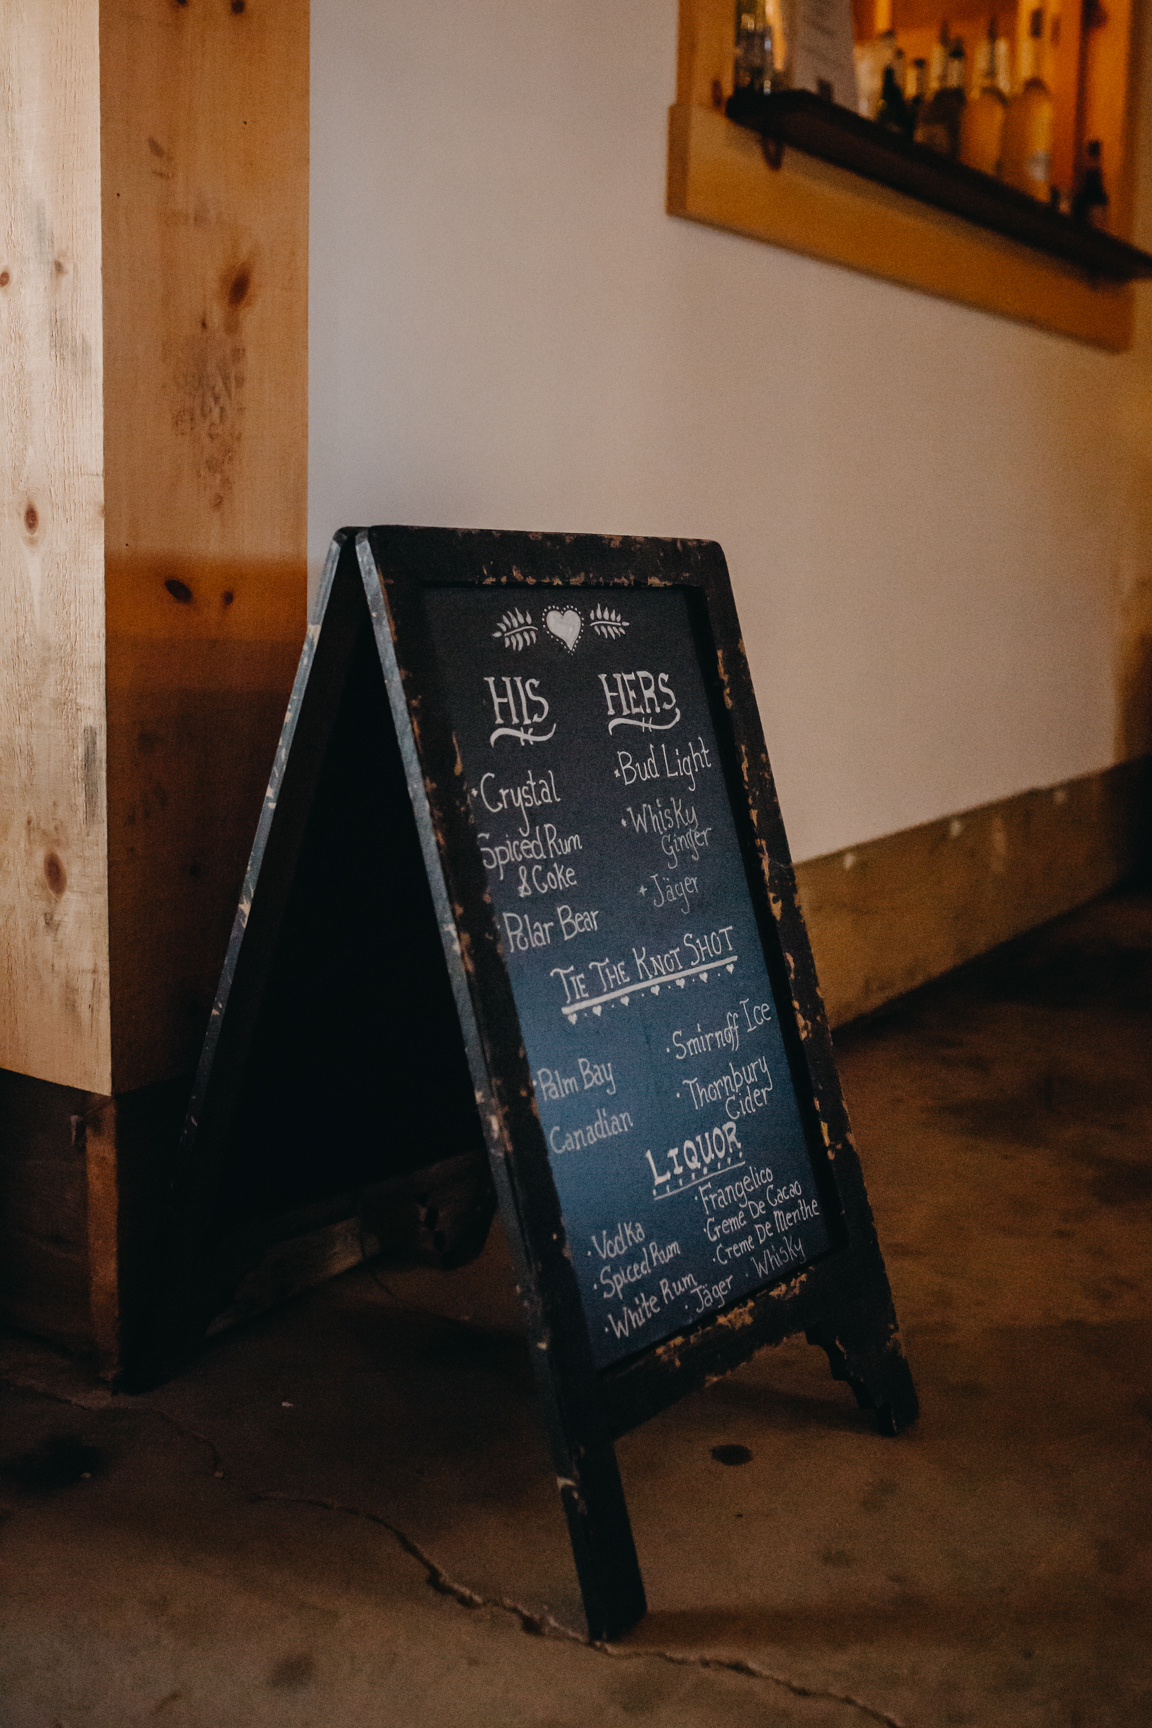 HIS
· Crystal
Spiced Rum
& Coke
Polar Bear
HERS
· Bud Light
· Whisky
Ginger
· Jäger
TIE THE KNOT SHOT
· Palm Bay
Canadian
· Smirnoff Ice
· Thornbury
Cider
LIQUOR
· Vodka
· Spiced Rum
· White Rum
· Jäger
· Frangelico
· Creme De Cacao
· Creme De Menthe
· Whisky